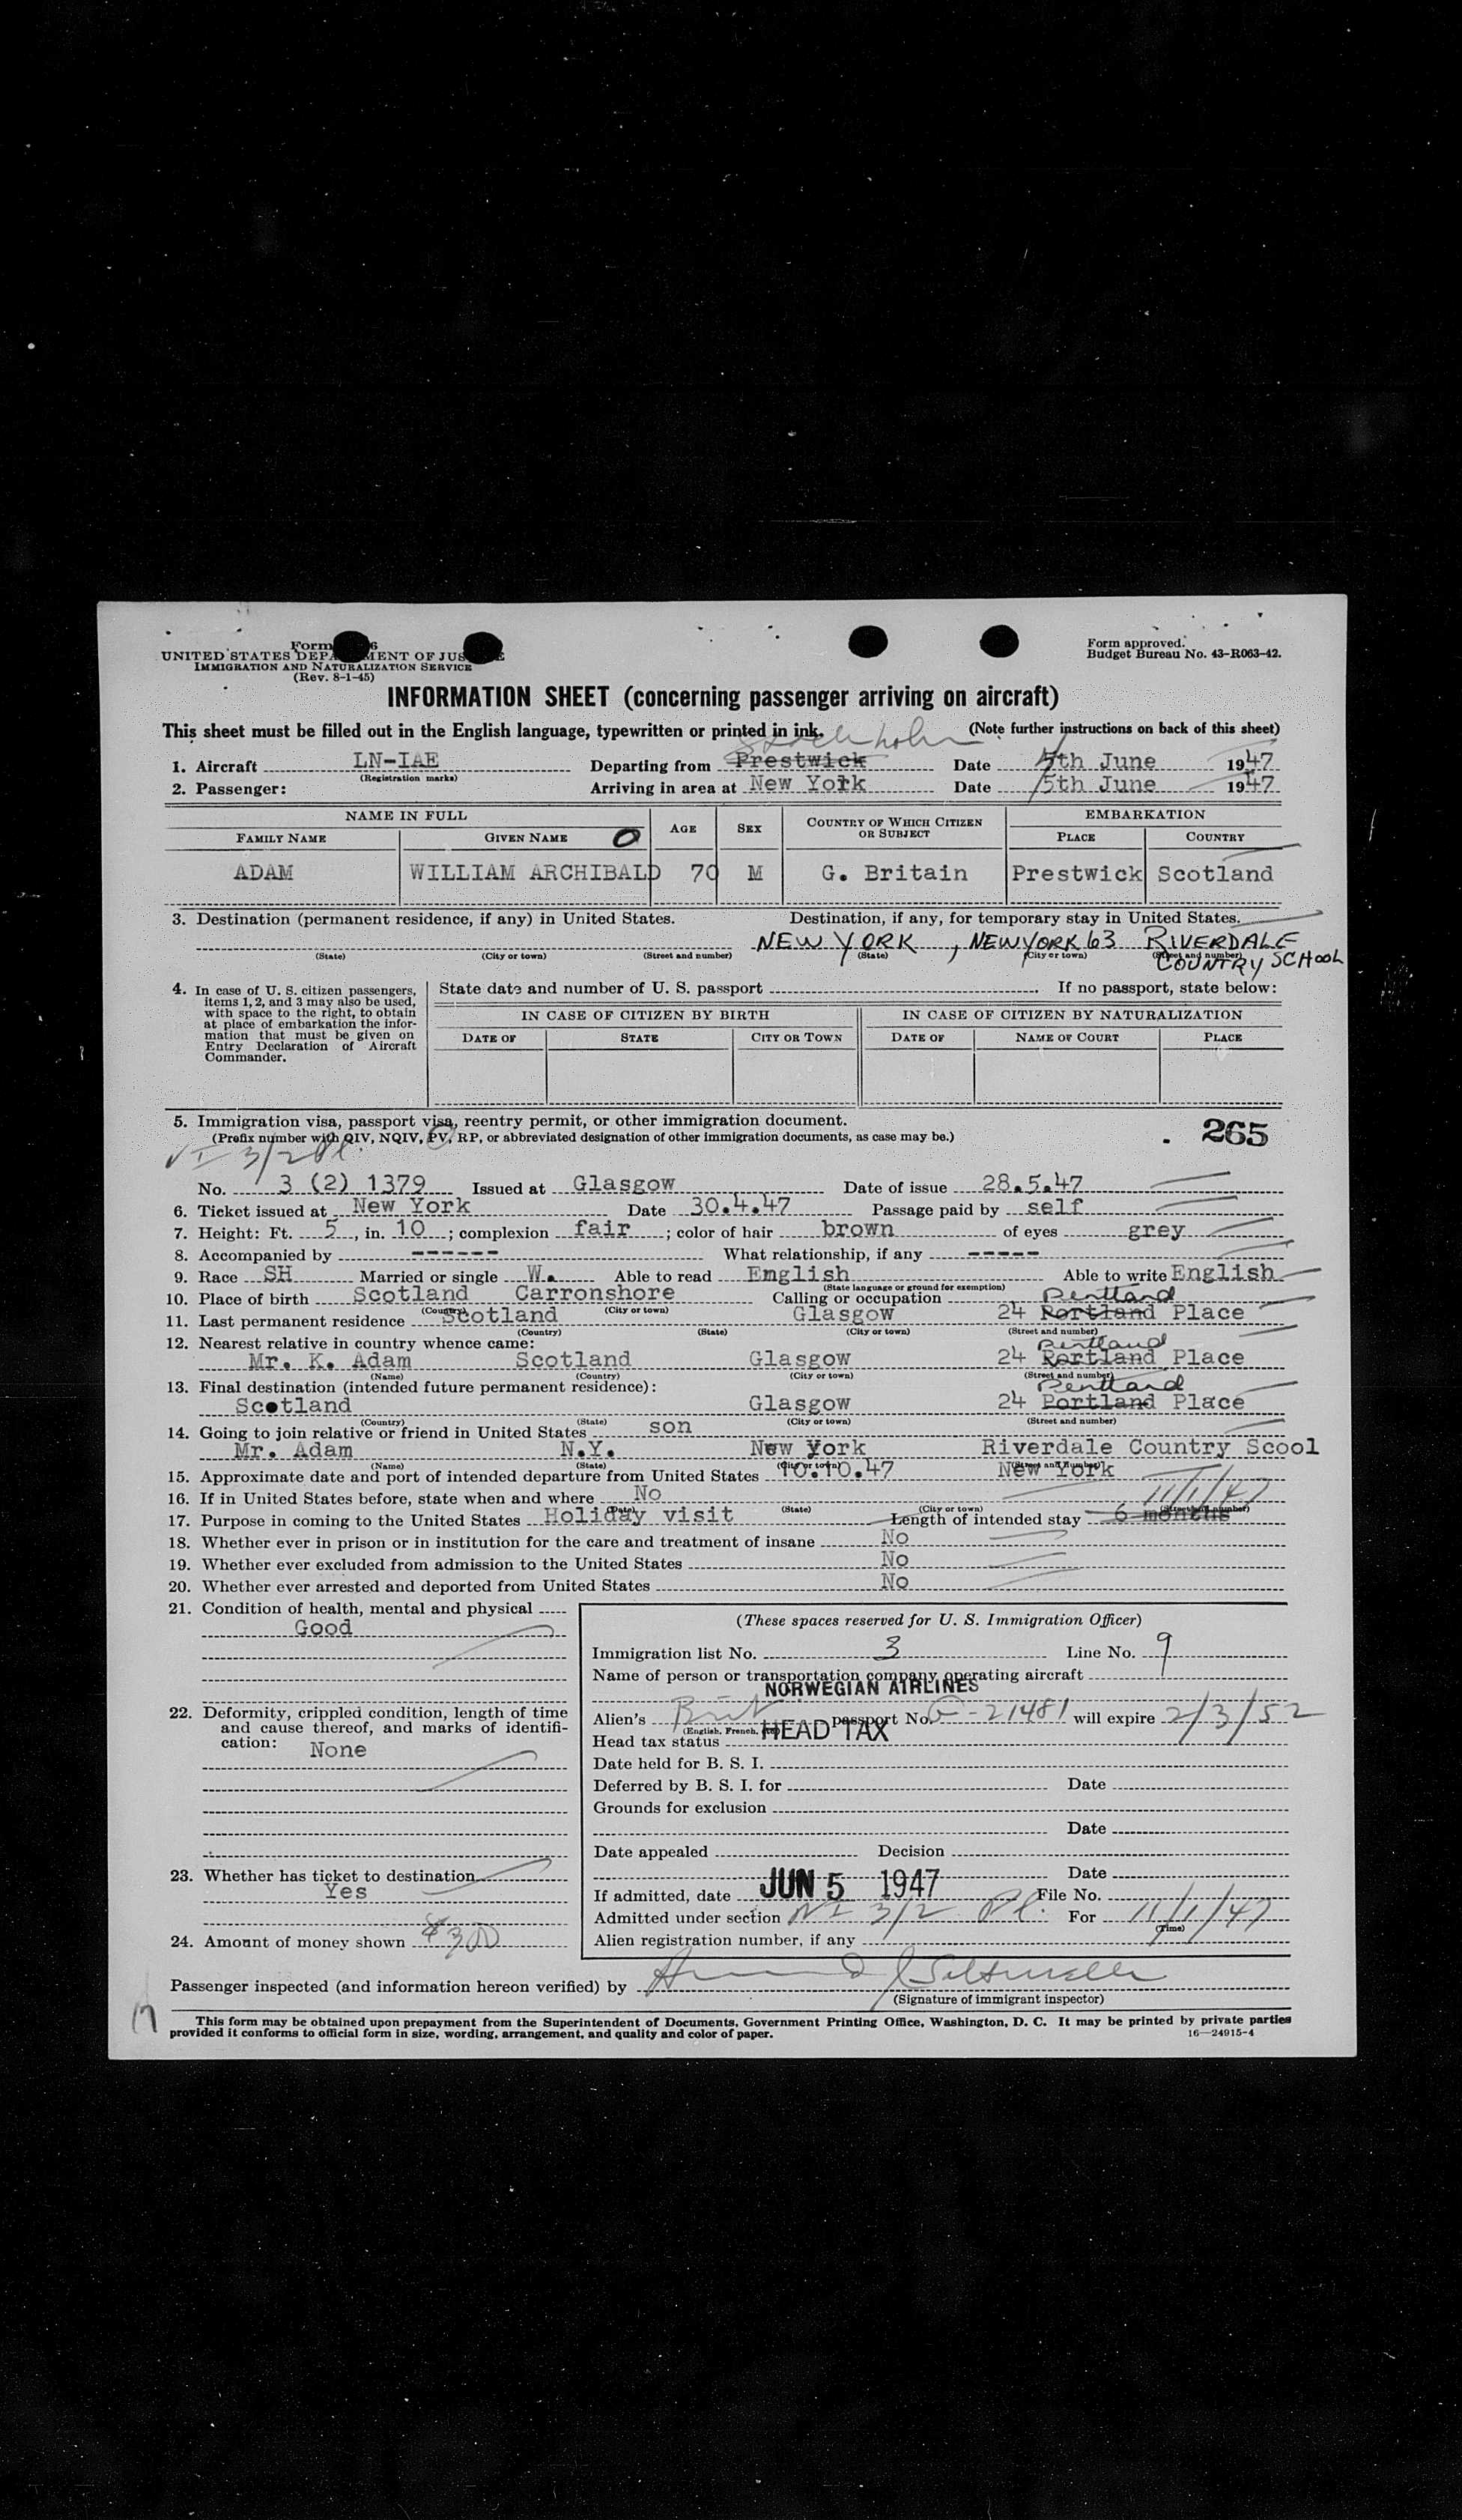 Form 6
UNITED STATES DEPARTMENT OF JUSTICE
IMMIGRATION AND NATURALIZATION SERVICE
(Rev. 8-1-45)
Form approved.
Budget Bureau No. 43-R063-42.
INFORMATION SHEET (concerning passenger arriving on aircraft)
This sheet must be filled out in the English language, typewritten or printed in ink. (Note further instructions on back of this sheet)
Stockholm
1. Aircraft LN-IAE Departing from Prestwick Date 4th June 1947
(Registration marks)
2. Passenger: Arriving in area at New York Date 5th June 1947
NAME IN FULL AGE SEX COUNTRY OF WHICH CITIZEN OR SUBJECT EMBARKATION
FAMILY NAME GIVEN NAME PLACE COUNTRY
ADAM WILLIAM ARCHIBALD 70 M G. Britain Prestwick Scotland
3. Destination (permanent residence, if any) in United States. Destination, if any, for temporary stay in United States.
NEW YORK, NEW YORK 63 RIVERDALE
COUNTRY SCHOOL
(State) (City or town) (Street and number) (State) (City or town) (Street and number)
4. In case of U. S. citizen passengers, items 1, 2, and 3 may also be used, with space to the right, to obtain at place of embarkation the information that must be given on Entry Declaration of Aircraft Commander.
State date and number of U. S. passport If no passport, state below:
IN CASE OF CITIZEN BY BIRTH IN CASE OF CITIZEN BY NATURALIZATION
DATE OF STATE CITY OR TOWN DATE OF NAME OF COURT PLACE
5. Immigration visa, passport visa, reentry permit, or other immigration document.
(Prefix number with QIV, NQIV, PV, RP, or abbreviated designation of other immigration documents, as case may be.)
265
3/2 Pl.
No. 3 (2) 1379 Issued at Glasgow Date of issue 28.5.47
6. Ticket issued at New York Date 30.4.47 Passage paid by self
7. Height: Ft. 5, in. 10; complexion fair; color of hair brown of eyes grey
8. Accompanied by ------ What relationship, if any -----
9. Race SH Married or single W. Able to read English Able to write English
(State language or ground for exemption)
10. Place of birth Scotland Carronshore Calling or occupation
(Country) (City or town)
Pentland
11. Last permanent residence Scotland Glasgow 24 Portland Place
(Country) (State) (City or town) (Street and number)
12. Nearest relative in country whence came:
Pentland
Mr. K. Adam Scotland Glasgow 24 Portland Place
(Name) (Country) (City or town) (Street and number)
13. Final destination (intended future permanent residence):
Pentland
Scotland Glasgow 24 Portland Place
(Country) (State) (City or town) (Street and number)
14. Going to join relative or friend in United States son
Mr. Adam N.Y. New York Riverdale Country Scool
(Name) (State) (City or town) (Street and number)
15. Approximate date and port of intended departure from United States 10.10.47 New York
16. If in United States before, state when and where No 11/1/47
(Date) (State) (City or town) (Street and number)
17. Purpose in coming to the United States Holiday visit Length of intended stay 6 months
18. Whether ever in prison or in institution for the care and treatment of insane No
19. Whether ever excluded from admission to the United States No
20. Whether ever arrested and deported from United States No
21. Condition of health, mental and physical
Good
22. Deformity, crippled condition, length of time and cause thereof, and marks of identification: None
23. Whether has ticket to destination
Yes
24. Amount of money shown $300
(These spaces reserved for U. S. Immigration Officer)
Immigration list No. 3 Line No. 9
Name of person or transportation company operating aircraft
NORWEGIAN AIRLINES
Alien's Brit passport No. G-21481 will expire 2/3/52
(English, French, etc.)
Head tax status HEAD TAX
Date held for B. S. I.
Deferred by B. S. I. for Date
Grounds for exclusion
Date
Date appealed Decision
Date
If admitted, date JUN 5 1947 File No.
Admitted under section 3/2 Pl. For 11/1/47
(Time)
Alien registration number, if any
Passenger inspected (and information hereon verified) by
(Signature of immigrant inspector)
17
This form may be obtained upon prepayment from the Superintendent of Documents, Government Printing Office, Washington, D. C. It may be printed by private parties
provided it conforms to official form in size, wording, arrangement, and quality and color of paper.
16—24915-4